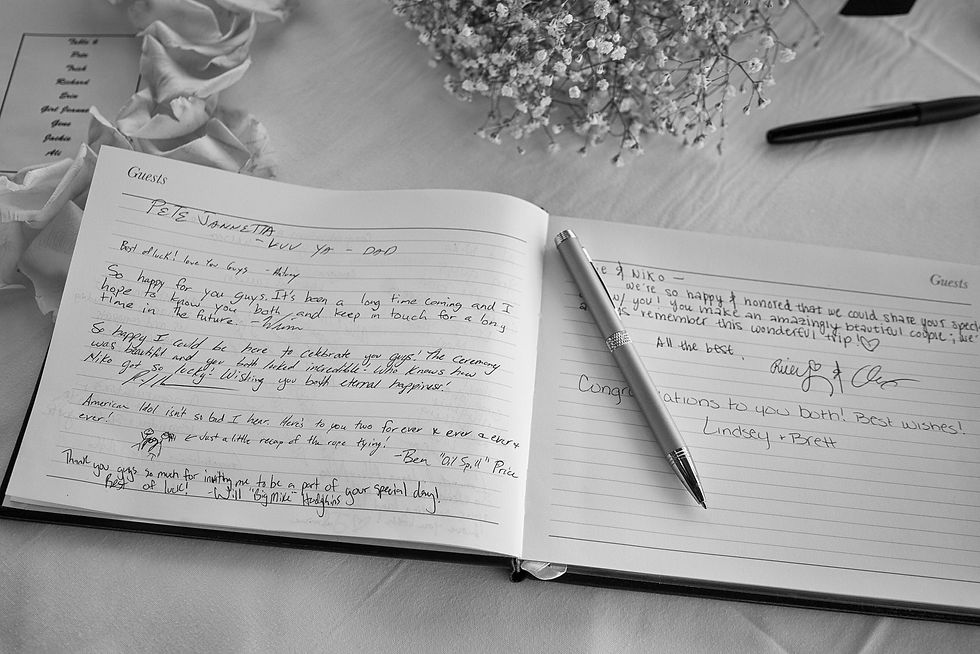 Table 6
Pete
Trish
Richard
Erin
Girl Jeanne
Gene
Jackie
Ali
Guests
PETE JANNETTA
- LUV YA - DAD
Best of luck! Love You Guys -
So happy for you guys. It's been a long time coming and I
hope to know you both and keep in touch for a long
time in the future.
So happy I could be here to celebrate you guys! The ceremony
was beautiful and you both looked incredible! Who knows how
Niko got so lucky! Wishing you both eternal happiness!
American Idol isn't so bad I hear. Here's to you two for ever & ever & ever &
ever!
← Just a little recap of the rope tying!
- Ben "Oil Spill" Price
Thank you guys so much for inviting me to be a part of your special day!
Best of luck! - Will "Big Mike" Hudgins
Guests
& NIKO —
we're so happy & honored that we could share your
w/ you! you make an amazingly beautiful couple,
remember this wonderful trip! ♡
All the best,
&
Congr ations to you both! Best wishes!
Lindsey + Brett